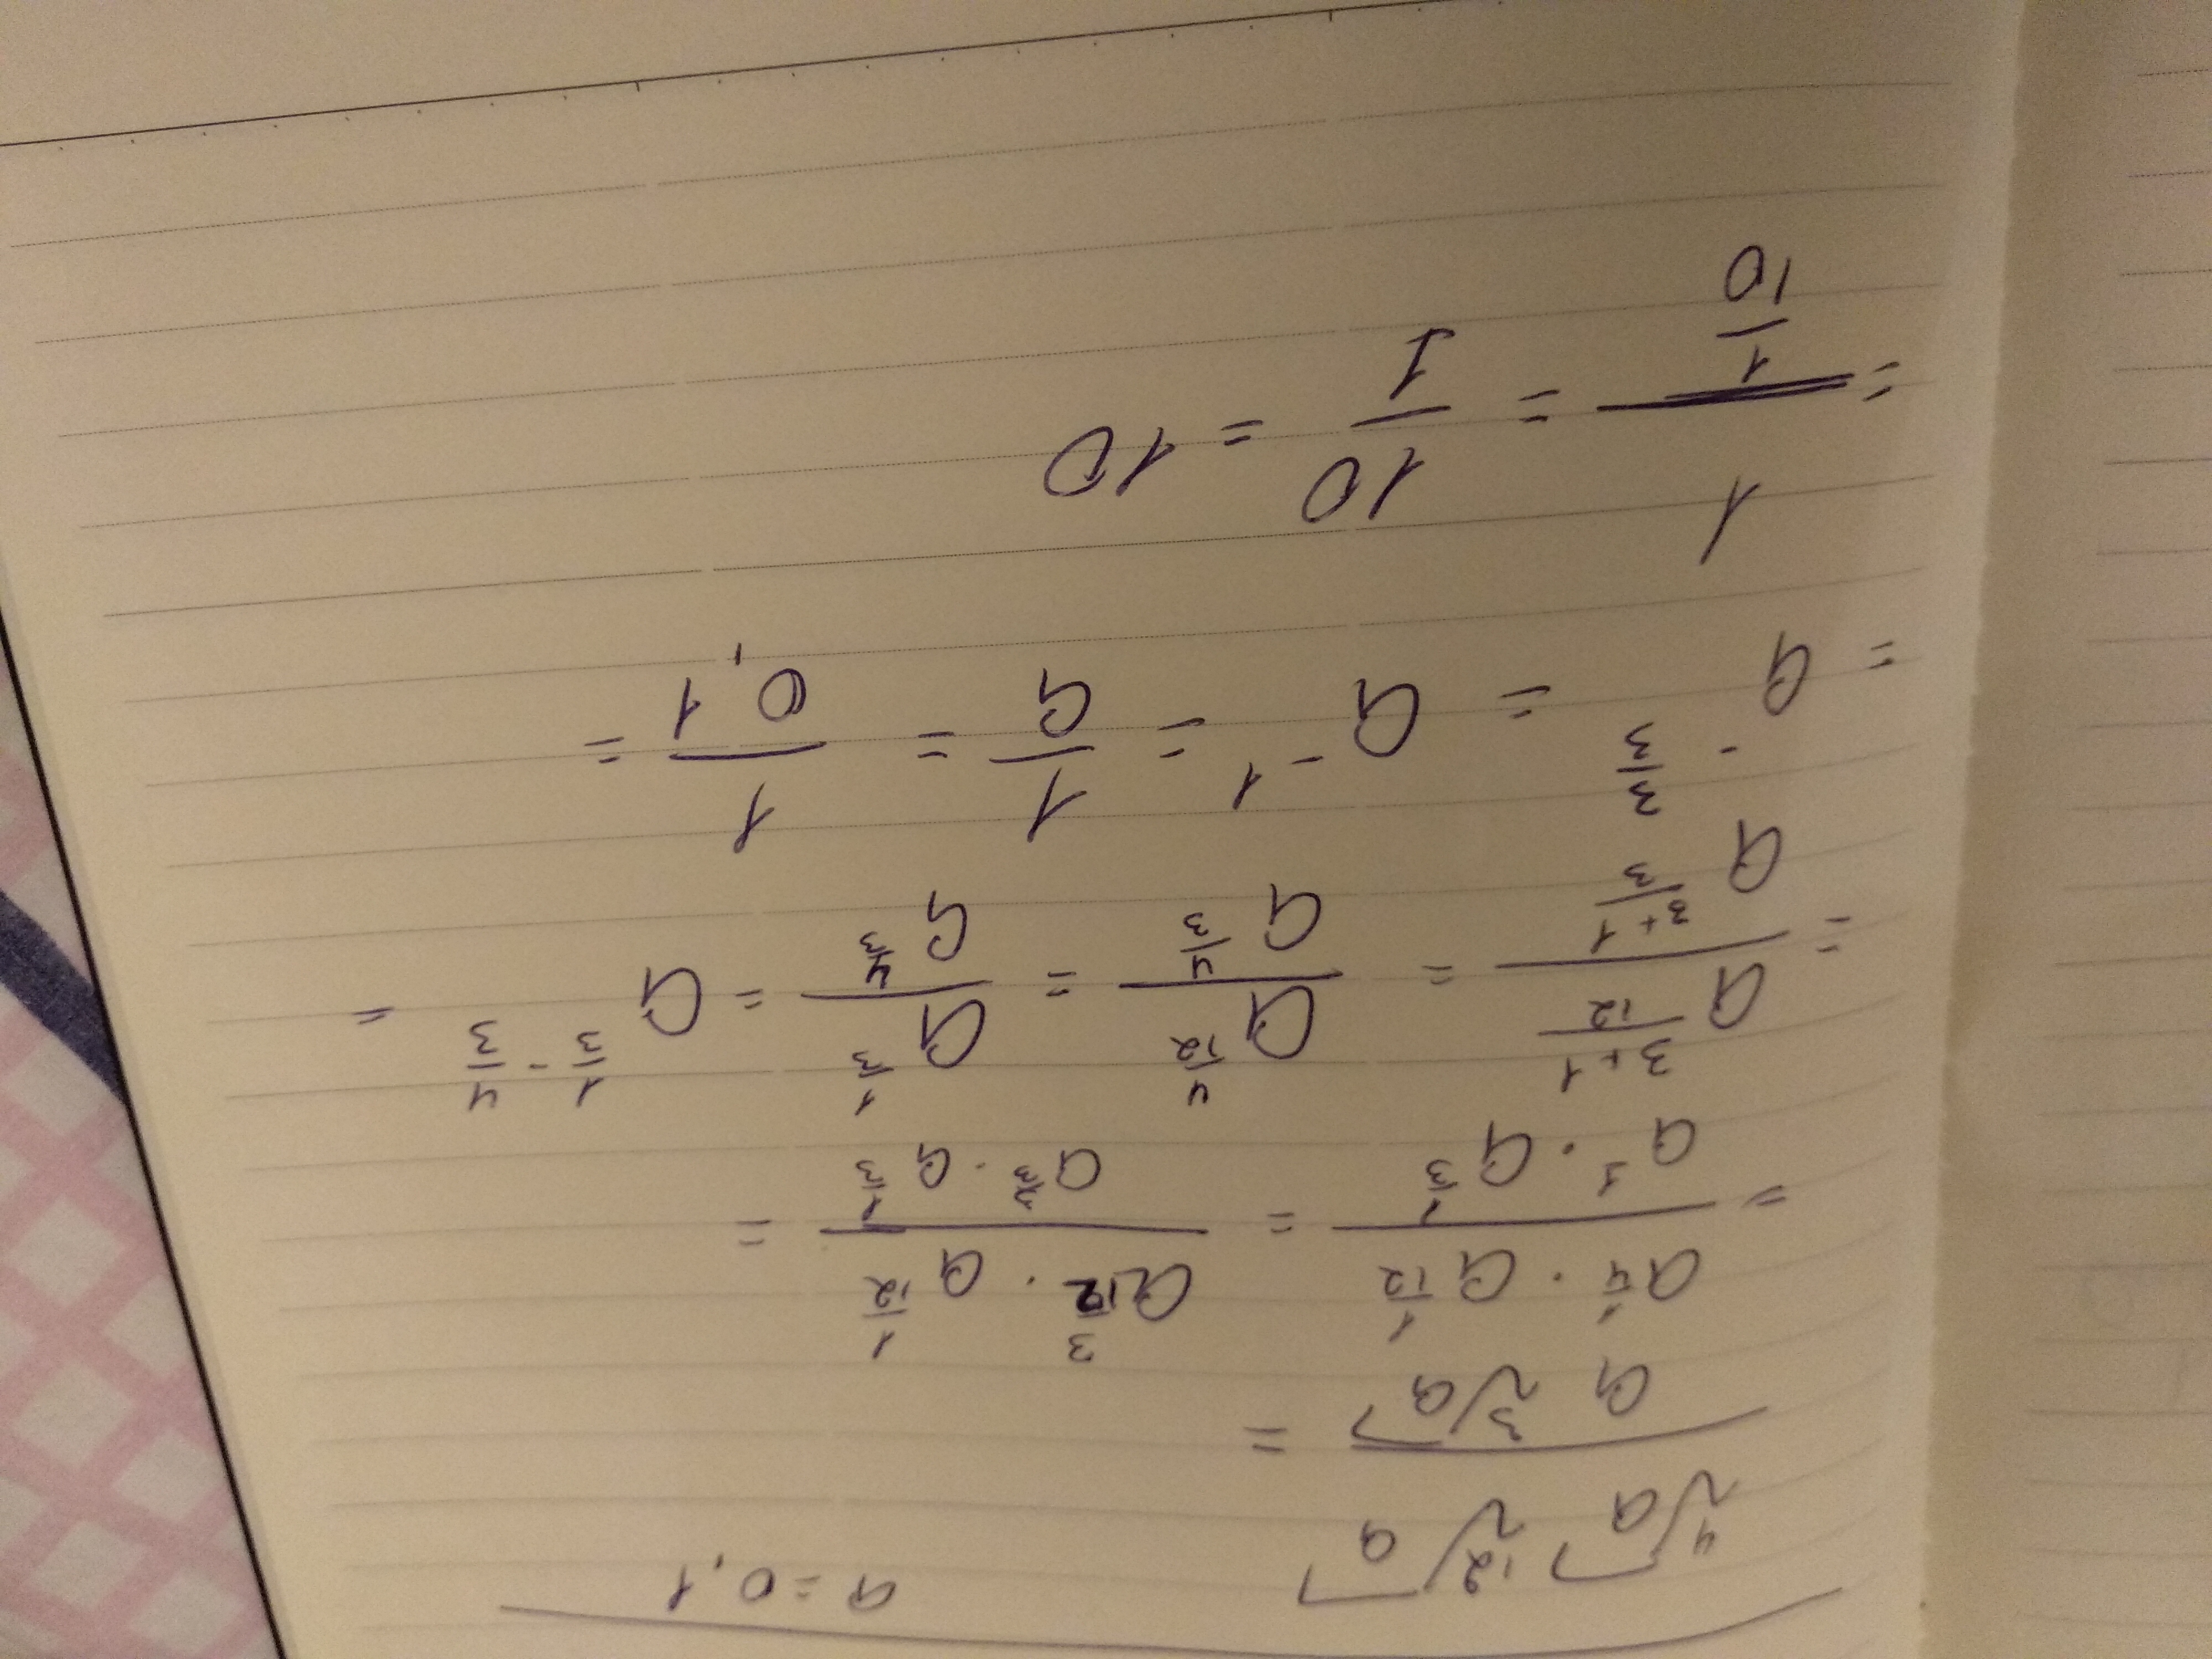 ⁴√a ¹²√a a = 0,1
―――――――― =
a ³√a
= (a^(1/4) · a^(1/12))/(a^1 · a^(1/3)) = (a^(3/12) · a^(1/12))/(a^(3/3) · a^(1/3)) =
= a^((3+1)/12)/a^((3+1)/3) = a^(4/12)/a^(4/3) = a^(1/3)/a^(4/3) = a^(1/3 - 4/3) =
= a^(-3/3) = a^(-1) = 1/a = 1/0,1 =
= 1/(1/10) = 10/1 = 10